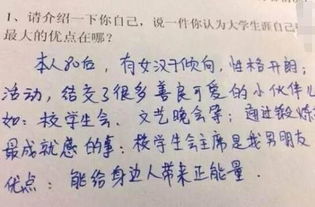 1、请介绍一下你自己，说一件你认为大学生涯自己
最大的优点在哪?
本人80后，有女汉子倾向，性格开朗；
活动，结交了很多善良可爱的小伙伴儿
如：校学生会、文艺晚会等；通过
最成就感的事：校学生会主席是我男朋友
优点：能给身边人带来正能量.